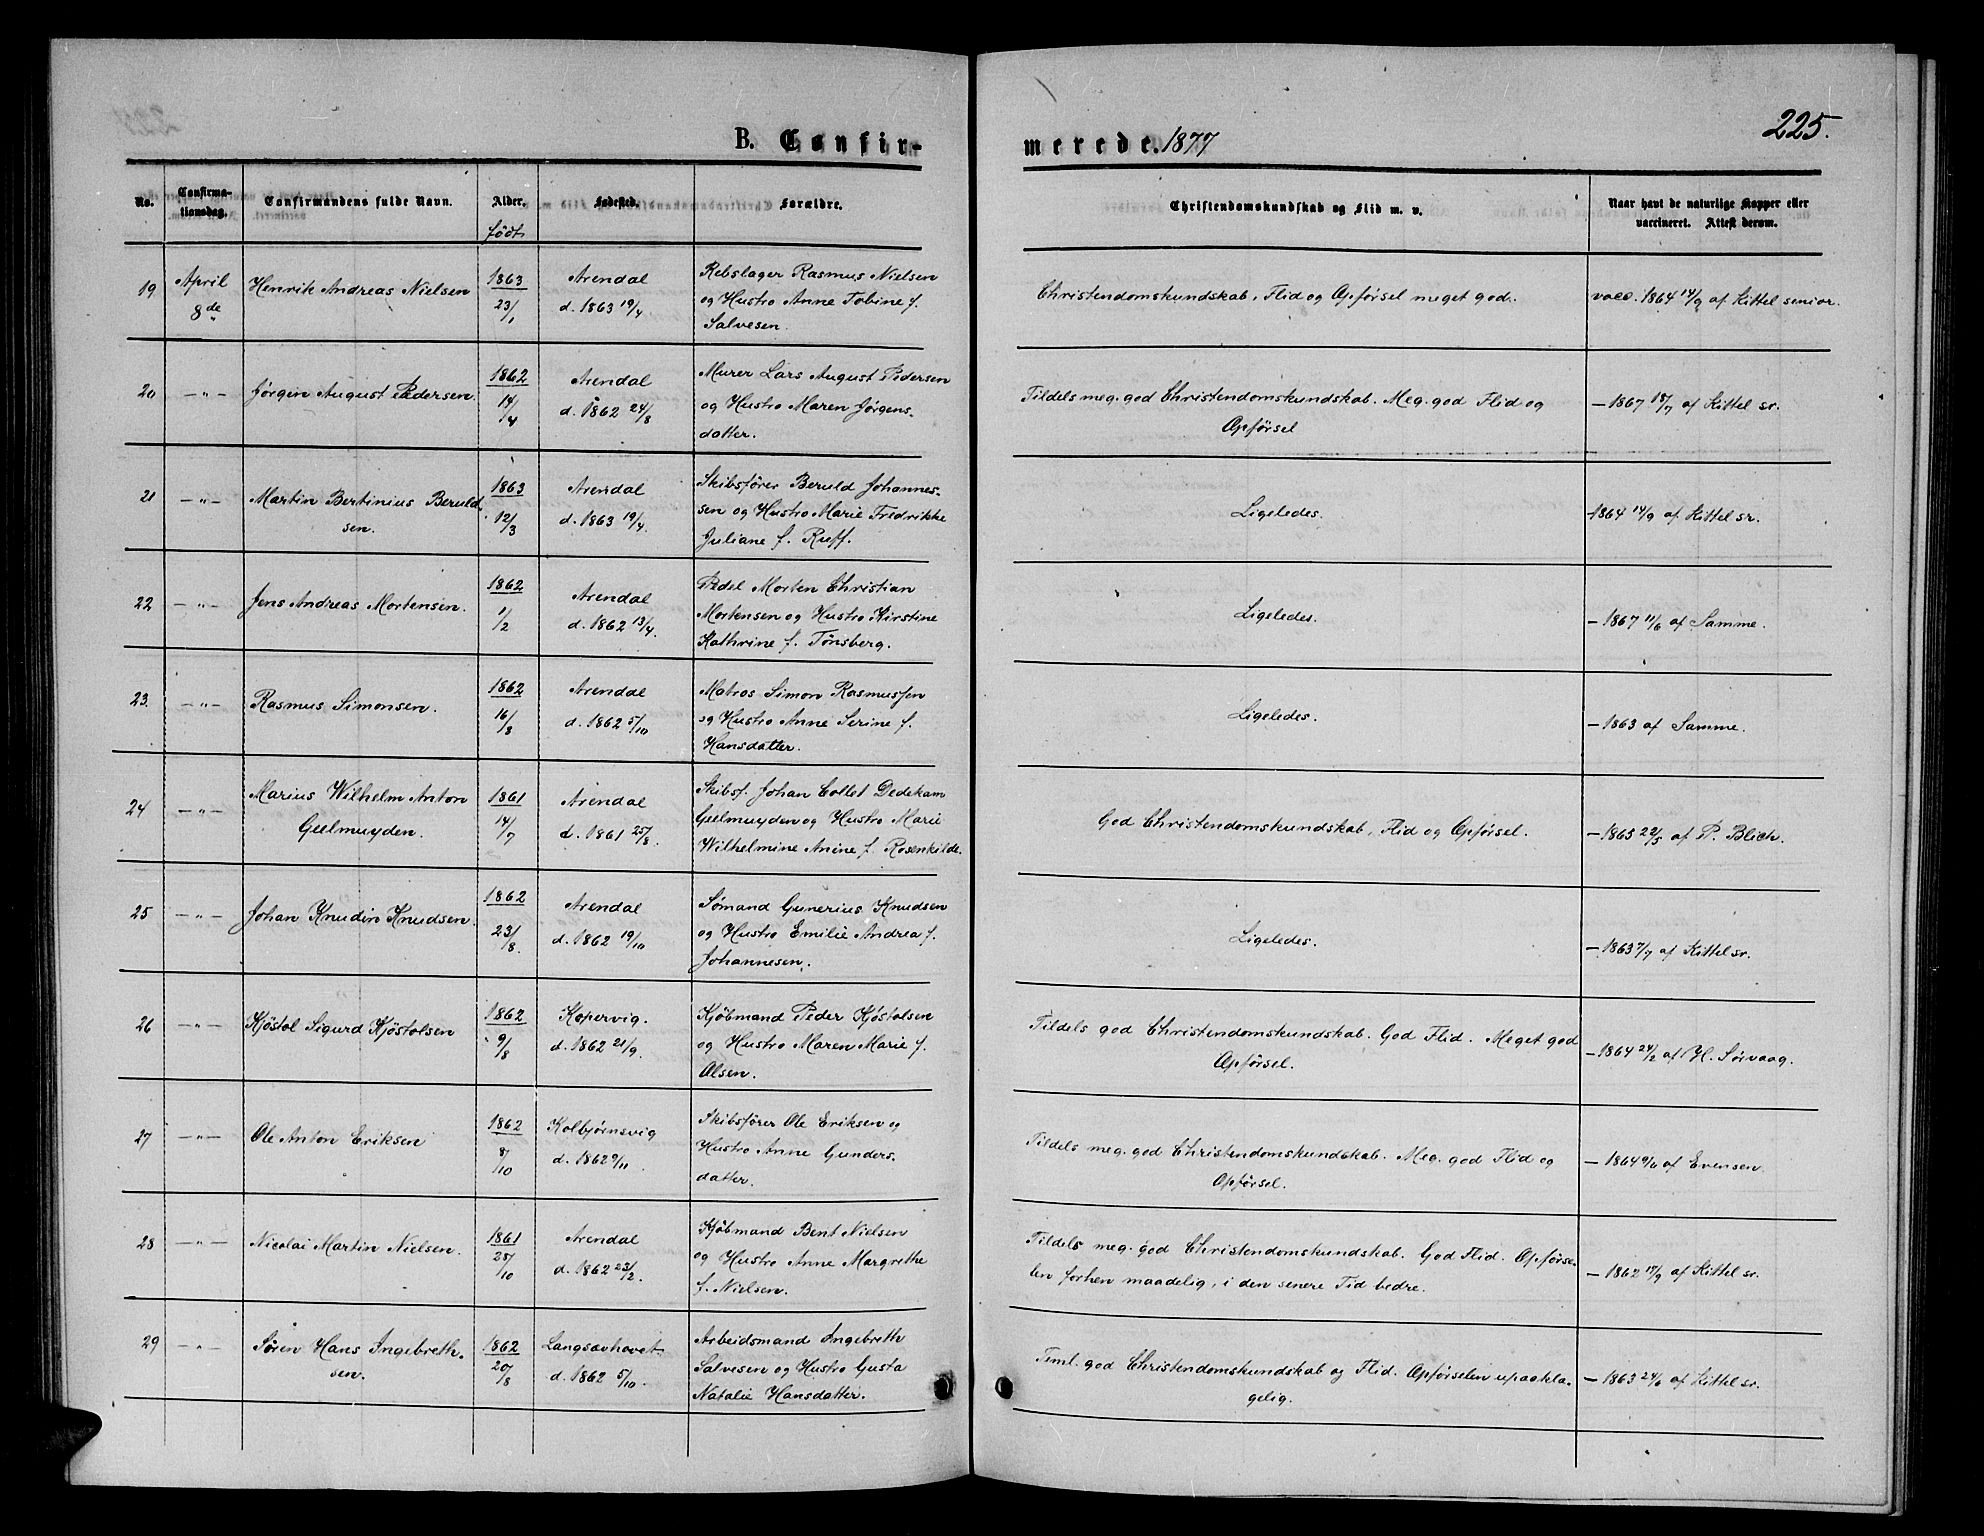 225.
B. Confir-
merede. 1877
No.
Confirma-
tionsdag.
Confirmandens fulde Navn.
Alder.
født
Fødested.
Forældre.
Christendomskundskab og Flid m. v.
Naar havt de naturlige Kopper eller
vaccineret. Attest derom.
19
April
8de
Henrik Andreas Nielsen
1863
23/1
Arendal
d. 1863 19/4
Rebslager Rasmus Nielsen
og Hustro Anne Tobine f.
Salvesen.
Christendomskundskab, Flid og Opførsel meget god.
vacc. 1864 14/9 af Kittel senior.
20
— " —
Jørgen August Pedersen.
1862
14/4
Arendal
d. 1862 24/8
Murer Lars August Pedersen
og Hustro Maren Jørgens-
datter.
Tildels meg. god Christendomskundskab. Meg. god Flid og
Opførsel
— 1867 18/7 af Kittel sr.
21
— " —
Martin Bertinius Beruld-
sen.
1863
12/3
Arendal
d. 1863 19/4.
Skibsfører Beruld Johannes-
sen og Hustro Marie Fredrikke
Juliane f. Ruff.
Ligeledes.
— 1864 14/9 af Kittel sr.
22
— " —
Jens Andreas Mortensen.
1862
1/2
Arendal
d. 1862 13/4.
Pedel Morten Christian
Mortensen og Hustro Kirstine
Kathrine f. Tønsberg.
Ligeledes.
— 1867 11/6 af Samme.
23.
— " —
Rasmus Simonsen.
1862
16/8
Arendal
d. 1862 5/10
Matros Simon Rasmussen
og Hustro Anne Serine f.
Hansdatter.
Ligeledes.
— 1863 af Samme.
24
— " —
Marius Wilhelm Anton
Geelmuyden.
1861
14/7
Arendal
d. 1861 25/8.
Skibsf. Johan Collet Dedekam
Geelmuyden og Hustro Marie
Wilhelmine Anine f. Rosenkilde.
God Christendomskundskab, Flid og Opførsel.
— 1863 22/5 af P. Blich.
25
— " —
Johan Knudin Knudsen.
1862
23/8.
Arendal
d. 1862 19/10
Sømand Gunerius Knudsen
og Hustro Emilie Andrea f.
Johannesen.
Ligeledes.
— 1863 7/7 af Kittel sr.
26
— " —
Kjøstol Sigurd Kjøstolsen
1862
9/8
Kopervig.
d. 1862 21/9.
Kjøbmand Peder Kjøstolsen
og Hustro Maren Marie f.
Olsen.
Tildels god Christendomskundskab. God Flid. Meget god
Opførsel.
— 1864 24/2 af H. Sørvaag.
27
— " —
Ole Anton Eriksen
1862
8/10
Kolbjørnsvig
d. 1862 9/11.
Skibsfører Ole Eriksen og
Hustro Anne Gunders-
datter.
Tildels meg. god Christendomskundskab. Meg. god Flid og
Opførsel.
— 1864 9/6 af Evensen.
28
— " —
Nicolai Martin Nielsen.
1861
25/10
Arendal
d. 1862 23/2.
Kjøbmand Bent Nielsen
og Hustro Anne Margrethe
f. Nielsen.
Tildels meg. god Christendomskundskab. God Flid. Opførse-
len forhen maadelig, i den senere Tid bedre.
— 1862 17/9 af Kittel sr.
29
— " —
Søren Hans Ingebreth-
sen.
1862
20/8
Langsævhavet
d. 1862 5/10.
Arbeidsmand Ingebreth
Salvesen og Hustro Gusta
Natalie Hansdatter.
Teml. god Christendomskundskab og Flid. Opførselen upaakla-
gelig.
— 1863 24/6 af Kittel sr.